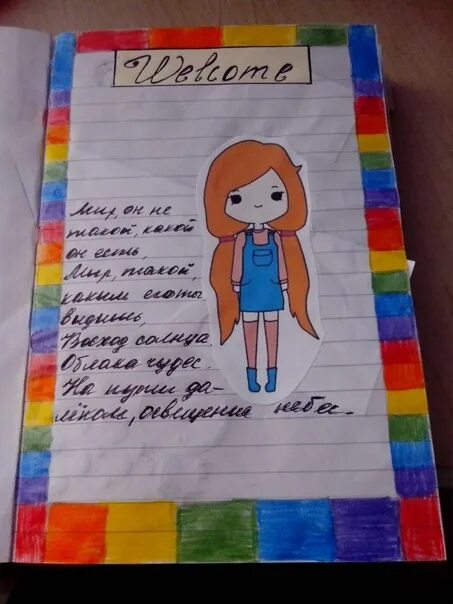 Welcome
Мир, он не
такой, какой
он есть,
Мир, такой,
каким его ты
видишь,
Восход солнца
Облака чудес.
На пути да-
лёком, освещение небес.